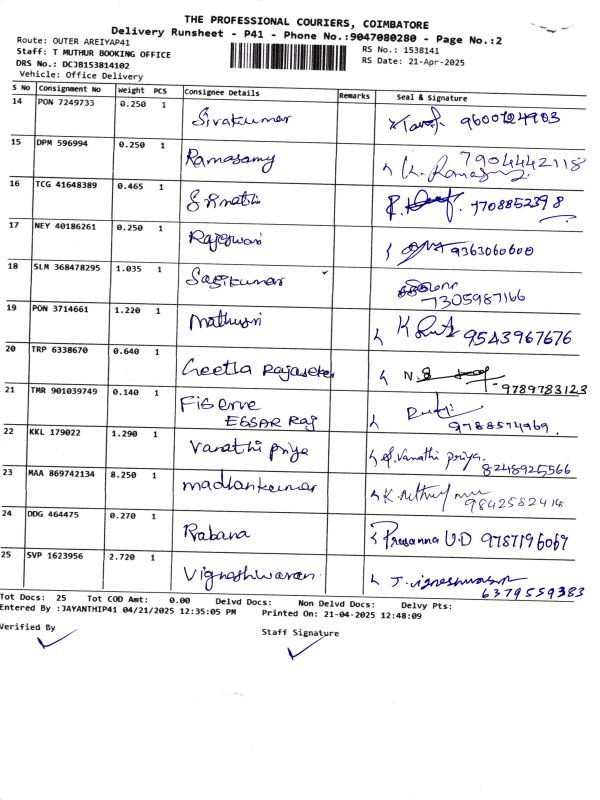 THE PROFESSIONAL COURIERS, COIMBATORE
Delivery Runsheet - P41 - Phone No.:9047080280 - Page No.:2
Route: OUTER AREIYAP41
RS No.: 1538141
Staff: T MUTHUR BOOKING OFFICE
RS Date: 21-Apr-2025
DRS No.: DCJB153814102
Vehicle: Office Delivery
S No Consignment No Weight PCS Consignee Details Remarks Seal & Signature
14 PON 7249733 0.250 1 Sivakumar 9600724903
15 DPM 596994 0.250 1 Ramasamy 7904442118
K. Ramasamy
16 TCG 41648389 0.465 1 Srinathi 7708852398
17 NEY 40186261 0.250 1 Rajeswari 9363060600
18 SLM 368478295 1.035 1 Sasikumar
7305987166
19 PON 3714661 1.220 1 Mathusri 9543967676
20 TRP 6338670 0.640 1 Geetha Rajaseker N.S
9789783123
21 TMR 901039749 0.140 1 Fiserve
EGSAR Raj 9788574969.
22 KKL 179022 1.290 1 Vanathi Priya Vanathi priya.
8248925566
23 MAA 869742134 8.250 1 Madhankumar
9842582414
24 DDG 464475 0.270 1 Rabana Prasanna U.D 9787196069
25 SVP 1623956 2.720 1 Vigneshwaran. J. Vigneshwaran
6379559383
Tot Docs: 25 Tot COD Amt: 0.00 Delvd Docs: Non Delvd Docs: Delvy Pts:
Entered By :JAYANTHIP41 04/21/2025 12:35:05 PM Printed On: 21-04-2025 12:48:09
Verified By
Staff Signature